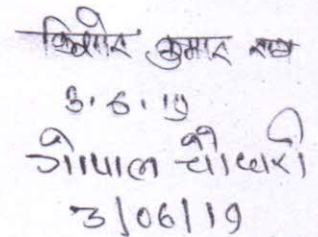 किशोर कुमार राय
3.6.19
गोपाल चौधरी
3/06/19